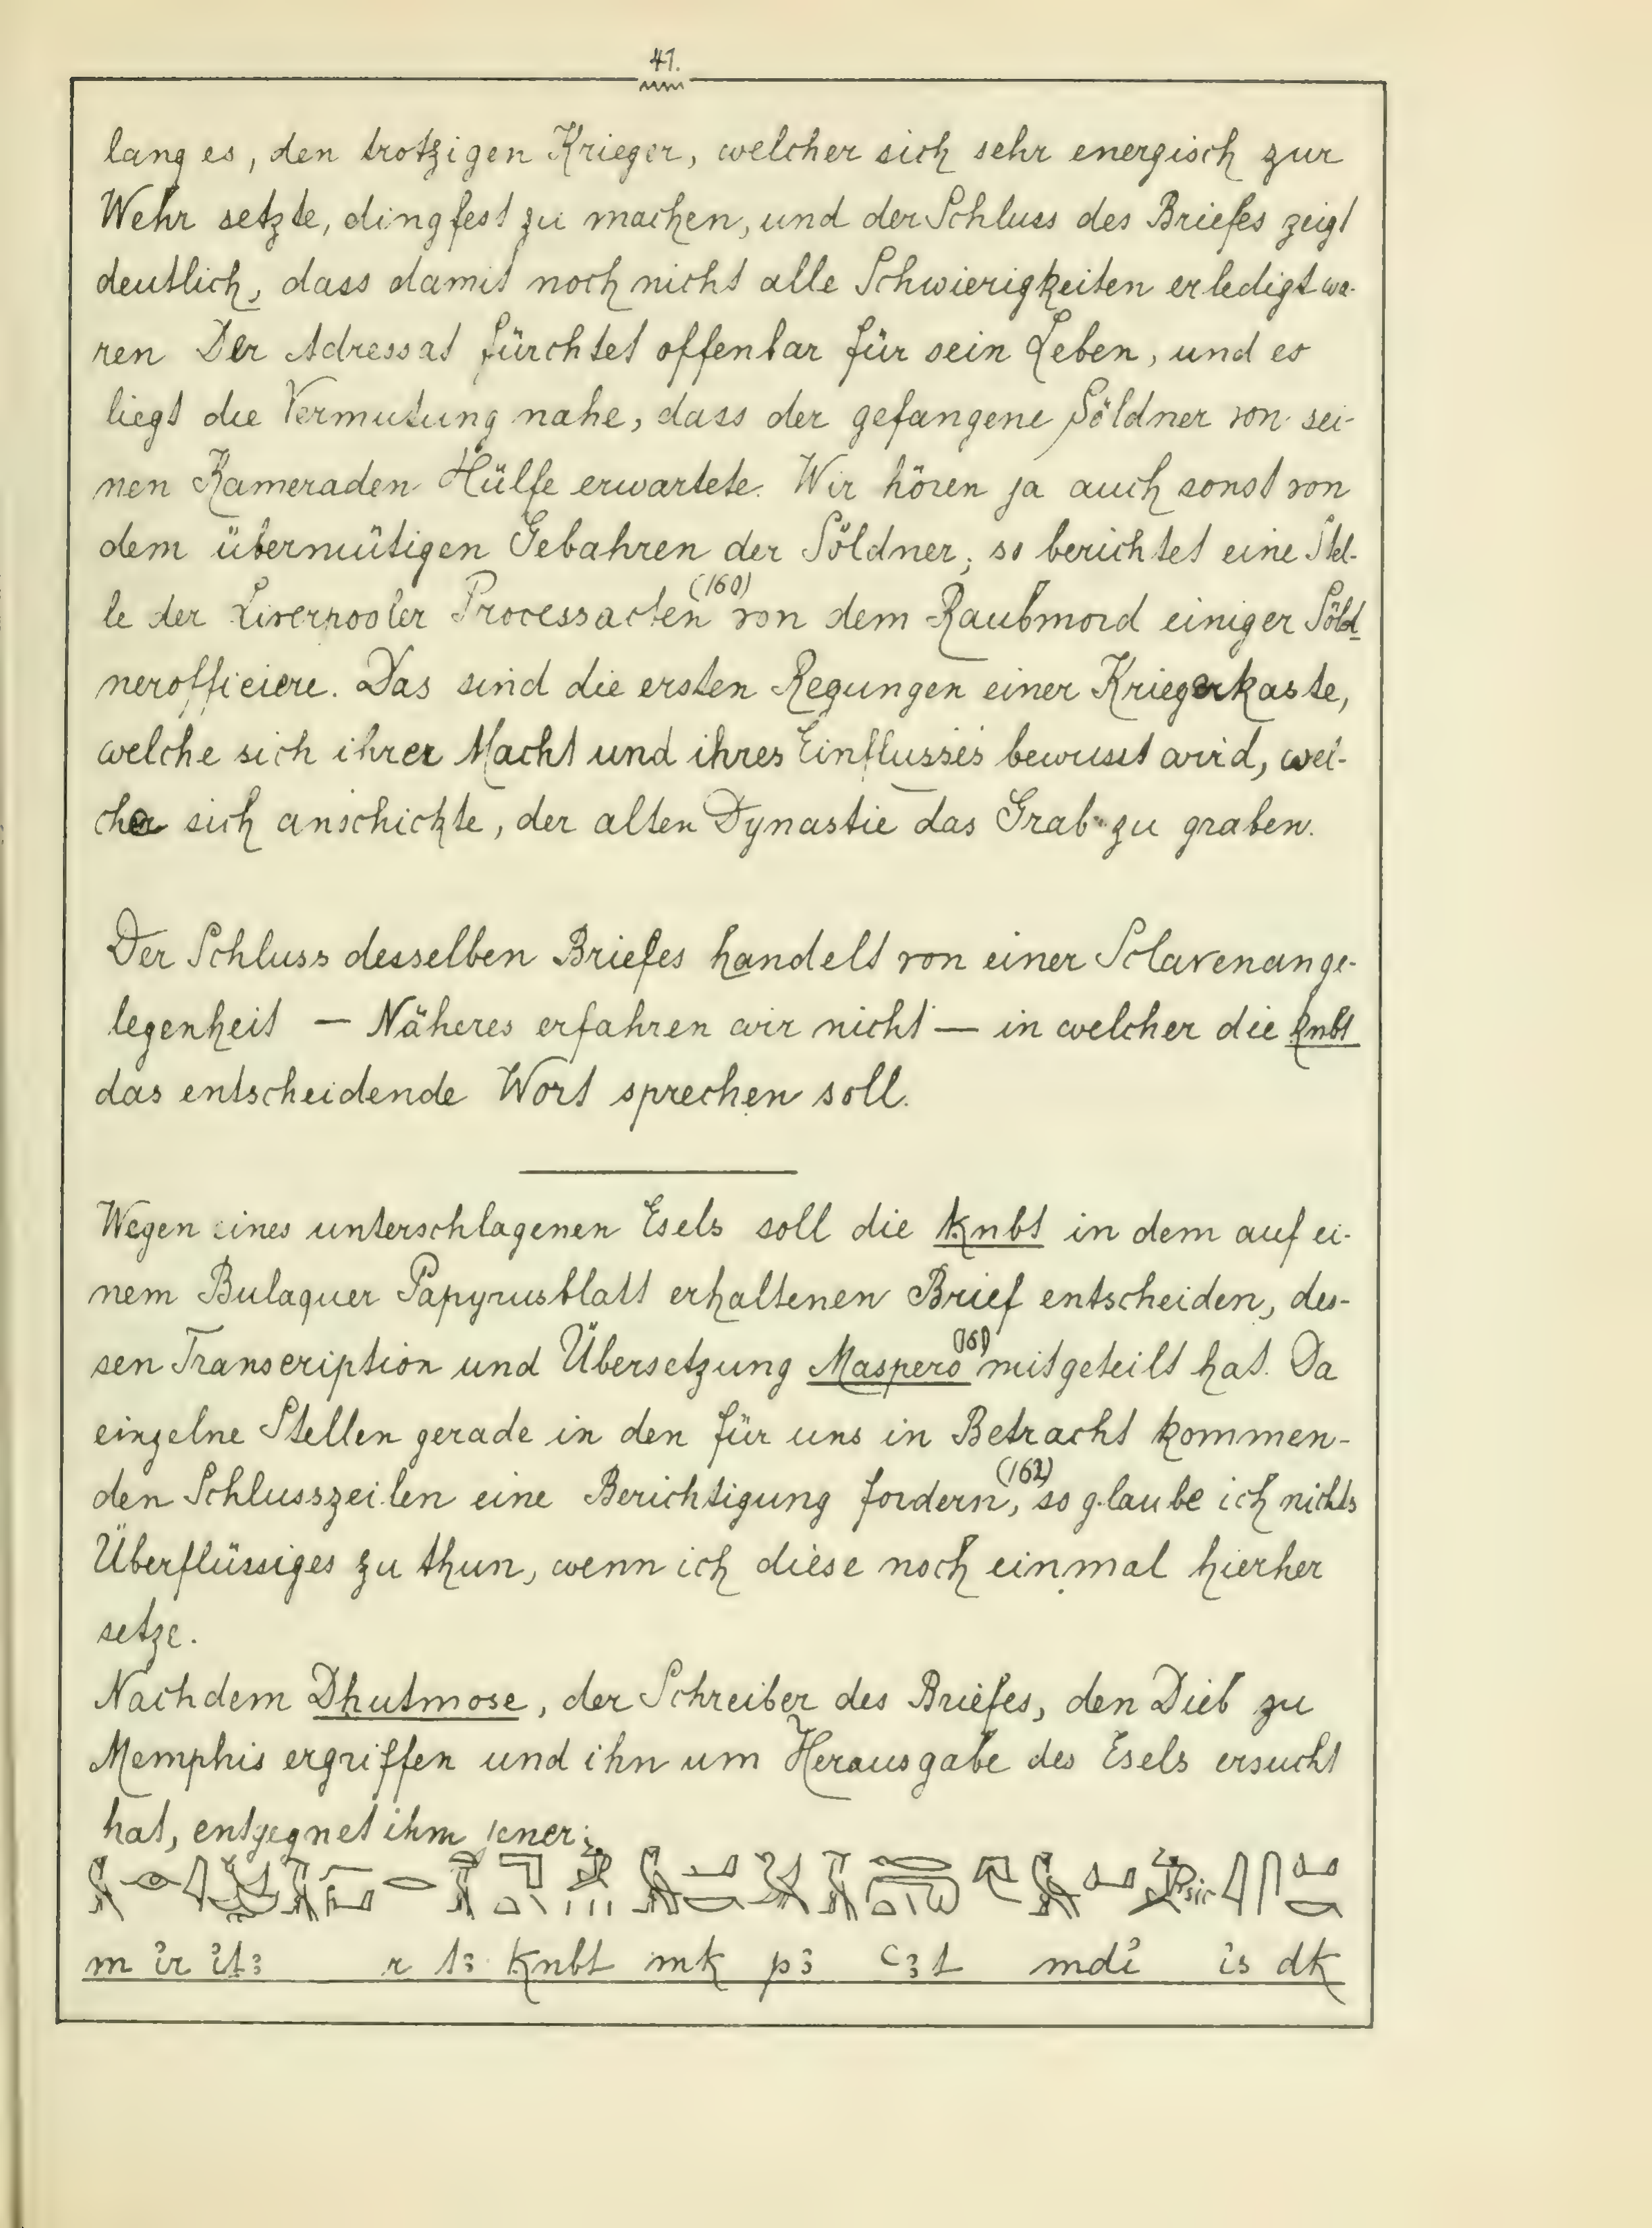 41.
lang es, den trotzigen Krieger, welcher sich sehr energisch zur
Wehr setzte, dingfest zu machen, und der Schluss des Briefes zeigt
deutlich, dass damit noch nicht alle Schwierigkeiten erledigt wa-
ren Der Adressat fürchtet offenbar für sein Leben, und es
liegt die Vermutung nahe, dass der gefangene Söldner von sei-
nen Kameraden Hülfe erwartete. Wir hören ja auch sonst von
dem übermütigen Gebahren der Söldner; so berichtet eine Stel-
le der Liverpooler Processacten (160) von dem Raubmord einiger Söld
nerofficiere. Das sind die ersten Regungen einer Kriegerkaste,
welche sich ihrer Macht und ihres Einflusses bewusst wird, wel-
che sich anschickte, der alten Dynastie das Grab zu graben.
Der Schluss desselben Briefes handelt von einer Sclavenange-
legenheit — Näheres erfahren wir nicht — in welcher die knbt
das entscheidende Wort sprechen soll.
Wegen eines unterschlagenen Esels soll die knbt in dem auf ei-
nem Bulaquer Papyrusblatt erhaltenen Brief entscheiden, des-
sen Transcription und Übersetzung Maspero (161) mitgeteilt hat. Da
einzelne Stellen gerade in den für uns in Betracht kommen-
den Schlusszeilen eine Berichtigung fordern, (162) so glaube ich nichts
Überflüssiges zu thun, wenn ich diese noch einmal hierher
setze.
Nachdem Dhutmose, der Schreiber des Briefes, den Dieb zu
Memphis ergriffen und ihn um Herausgabe des Esels ersucht
hat, entgegnet ihm jener:
sic
m ir iṯꜣ r tꜣ knbt mk pꜣ ꜥꜣt mdi is dk